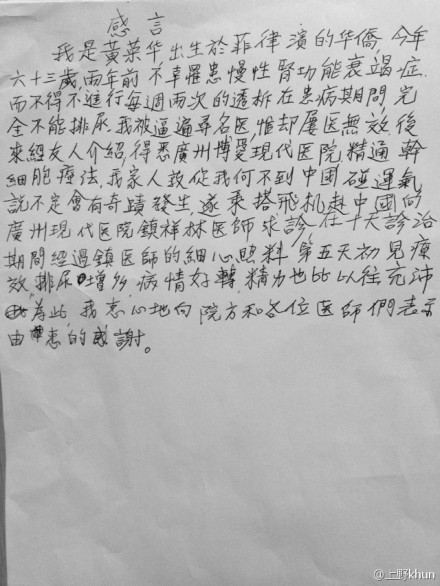 感言
我是黃荣华出生於菲律濱的华僑,今年
六十三歲,兩年前不幸罹患慢性腎功能衰竭症.
而不得不進行每週兩次的透析在患病期間,完
全不能排尿.我被逼遍尋名医,惟却屢医無效後
來經友人介紹,得悉廣州博愛現代医院精通幹
細胞療法,我家人敦促我何不到中国碰運氣
説不定會有奇蹟發生,遂乘搭飛机赴中國的
廣州現代医院鎮祥林医師求診在十天診治
期間經過鎮医師的細心照料,第五天初見療
效,排尿增多,病情好轉,精力也比以往充沛
為此,我衷心地向院方和各位医師們表示
由衷的感謝。
@上野khun